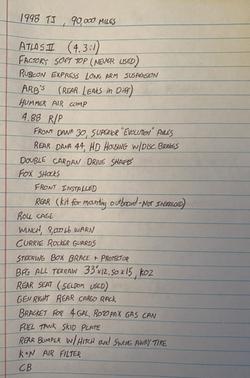 1998 TJ, 90,000 MILES
ATLAS II (4.3:1)
FACTORY SOFT TOP (NEVER USED)
RUBICON EXPRESS LONG ARM SUSPENSION
ARB'S (REAR LEAKS IN DIFF)
HUMMER AIR COMP
4.88 R/P
FRONT DANA 30, SUPERIOR "EVOLUTION" AXLES
REAR DANA 44, HD HOUSING W/DISC BRAKES
DOUBLE CARDAN DRIVE SHAFTS
FOX SHOCKS
FRONT INSTALLED
REAR (kit for mounting outboard - NOT INSTALLED)
ROLL CAGE
WINCH, 9,000 lb WARN
CURRIE ROCKER GUARDS
STEERING BOX BRACE + PROTECTOR
BFG ALL TERRAIN 33"x12.50x15, KO2
REAR SEAT (SELDOM USED)
GENRIGHT REAR CARGO RACK
BRACKET FOR 4 GAL. ROTOPAX GAS CAN
FUEL TANK SKID PLATE
REAR BUMPER W/HITCH AND SWING AWAY TIRE
K+N AIR FILTER
CB